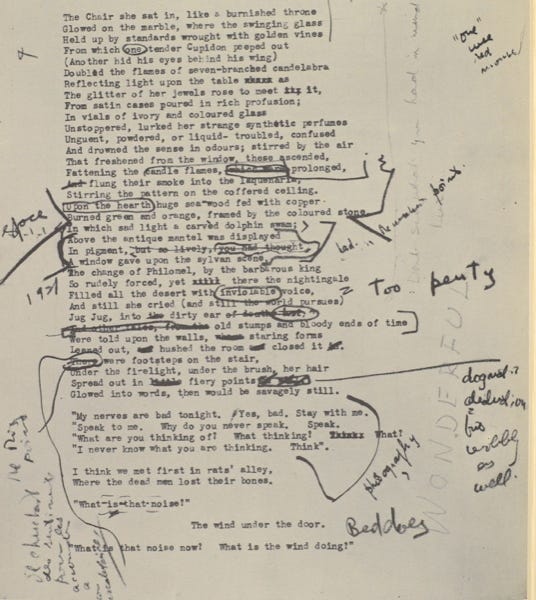 The Chair she sat in, like a burnished throne
Glowed on the marble, where the swinging glass
Held up by standards wrought with golden vines
From which one tender Cupidon peeped out
(Another hid his eyes behind his wing)
Doubled the flames of seven-branched candelabra
Reflecting light upon the table as
The glitter of her jewels rose to meet it,
From satin cases poured in rich profusion;
In vials of ivory and coloured glass
Unstoppered, lurked her strange synthetic perfumes
Unguent, powdered, or liquid- troubled, confused
And drowned the sense in odours; stirred by the air
That freshened from the window, these ascended,
Fattening the candle flames, which were prolonged,
And flung their smoke into the laquenaria,
Stirring the pattern on the coffered ceiling.
Upon the hearth huge sea-wood fed with copper
Burned green and orange, framed by the coloured stone,
In which sad light a carved dolphin swam;
Above the antique mantel was displayed
In pigment, but so lively, you had thought
A window gave upon the sylvan scene,
The change of Philomel, by the barbarous king
So rudely forced, yet there the nightingale
Filled all the desert with inviolable voice,
And still she cried (and still the world pursues)
Jug Jug, into the dirty ear of death; lust;
And other tales, from the old stumps and bloody ends of time
Were told upon the walls, where staring forms
Leaned out, and hushed the room and closed it in.
There were footsteps on the stair,
Under the firelight, under the brush, her hair
Spread out in little fiery points
Glowed into words, then would be savagely still.
"My nerves are bad tonight. Yes, bad. Stay with me.
"Speak to me. Why do you never speak. Speak.
"What are you thinking of? What thinking! What!
"I never know what you are thinking. Think".
I think we met first in rats' alley,
Where the dead men lost their bones.
"What is that noise?"
The wind under the door.
"What is that noise now? What is the wind doing?"
"one"
wee
red
mouse
Space
1.1.1
1921
= Too penty
dogmatic
deduction
but
wobbly
as
well.
photography
Beddoes
WONDERFUL
Il cherchait
des sentiments
pour les
accomoder
a
son vocabulaire